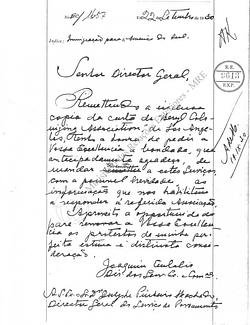 22 Setembro 30
Immigração para a America do Sul.
Senhor Director Geral,
Remettendo a inclusa
copia da carta de Beryl Colo-
nizing Association, de Los Ange-
les, tenho a honra de pedir a
Vossa Excellencia a bondade, que
antecipadamente agradeço, de
mandar a estes Serviços,
com a possivel brevidade as
informações que nos habilitem
a responder á referida Associação.
Aproveito a opportunidade
para renovar a Vossa Excellen-
cia os protestos de minha per-
feita estima e distincta conside-
ração.
Joaquim
R.E.
9613
REP.
Director Geral do Serviço de Povoamento
MRE